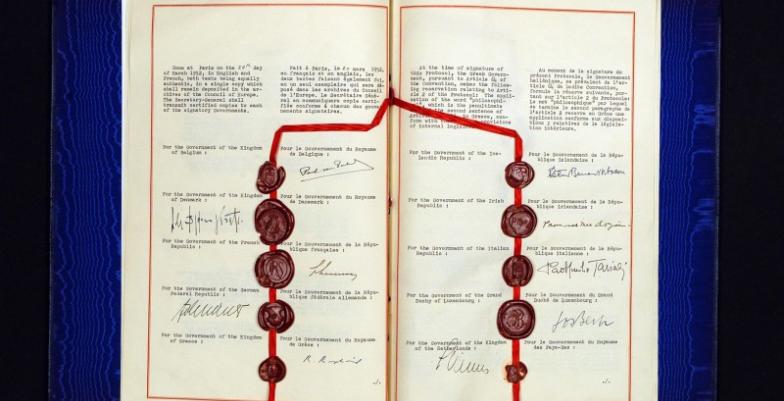 Done at Paris on the 20th day
of March 1952, in English and
French, both texts being equally
authentic, in a single copy which
shall remain deposited in the ar-
chives of the Council of Europe.
The Secretary-General shall
transmit certified copies to each
of the signatory Governments.
Fait à Paris, le 20 mars 1952,
en français et en anglais, les
deux textes faisant également foi,
en un seul exemplaire qui sera dé-
posé dans les archives du Conseil
de l'Europe. Le Secrétaire Géné-
ral en communiquera copie certi-
fiée conforme à chacun des gouver-
nements signataires.
For the Government of the Kingdom
of Belgium :
Pour le Gouvernement du Royaume
de Belgique :
For the Government of the Kingdom
of Denmark :
Pour le Gouvernement du Royaume
de Danemark :
For the Government of the French
Republic :
Pour le Gouvernement de la Répu-
blique française :
For the Government of the German
Federal Republic :
Pour le Gouvernement de la Répu-
blique fédérale allemande :
For the Government of the Kingdom
of Greece :
Pour le Gouvernement du Royaume
de Grèce :
At the time of signature of
this Protocol, the Greek Govern-
ment, pursuant to Article 64 of
the Convention, makes the follow-
ing reservation relating to Arti-
cle 2 of the Protocol: The appli-
cation of the word "philosophi-
cal", which is the penultimate
with the provisions
of internal legislation.
Au moment de la signature du
présent Protocole, le Gouvernement
hellénique, se prévalant de l'ar-
ticle 64 de ladite Convention,
formule la réserve suivante, por-
tant sur l'article 2 du Protocole:
Le mot "philosophique" par lequel
se termine le second paragraphe de
l'article 2 recevra en Grèce une
application conforme aux disposi-
tions y relatives de la législa-
tion intérieure.
For the Government of the Ice-
landic Republic :
Pour le Gouvernement de la Répu-
blique islandaise :
For the Government of the Irish
Republic :
Pour le Gouvernement de la Répu-
blique irlandaise :
For the Government of the Italian
Republic :
Pour le Gouvernement de la Répu-
blique italienne :
For the Government of the Grand
Duchy of Luxembourg :
Pour le Gouvernement du Grand
Duché de Luxembourg :
Jos Bech
For the Government of the Kingdom
of the Netherlands :
Pour le Gouvernement du Royaume
des Pays-Bas :